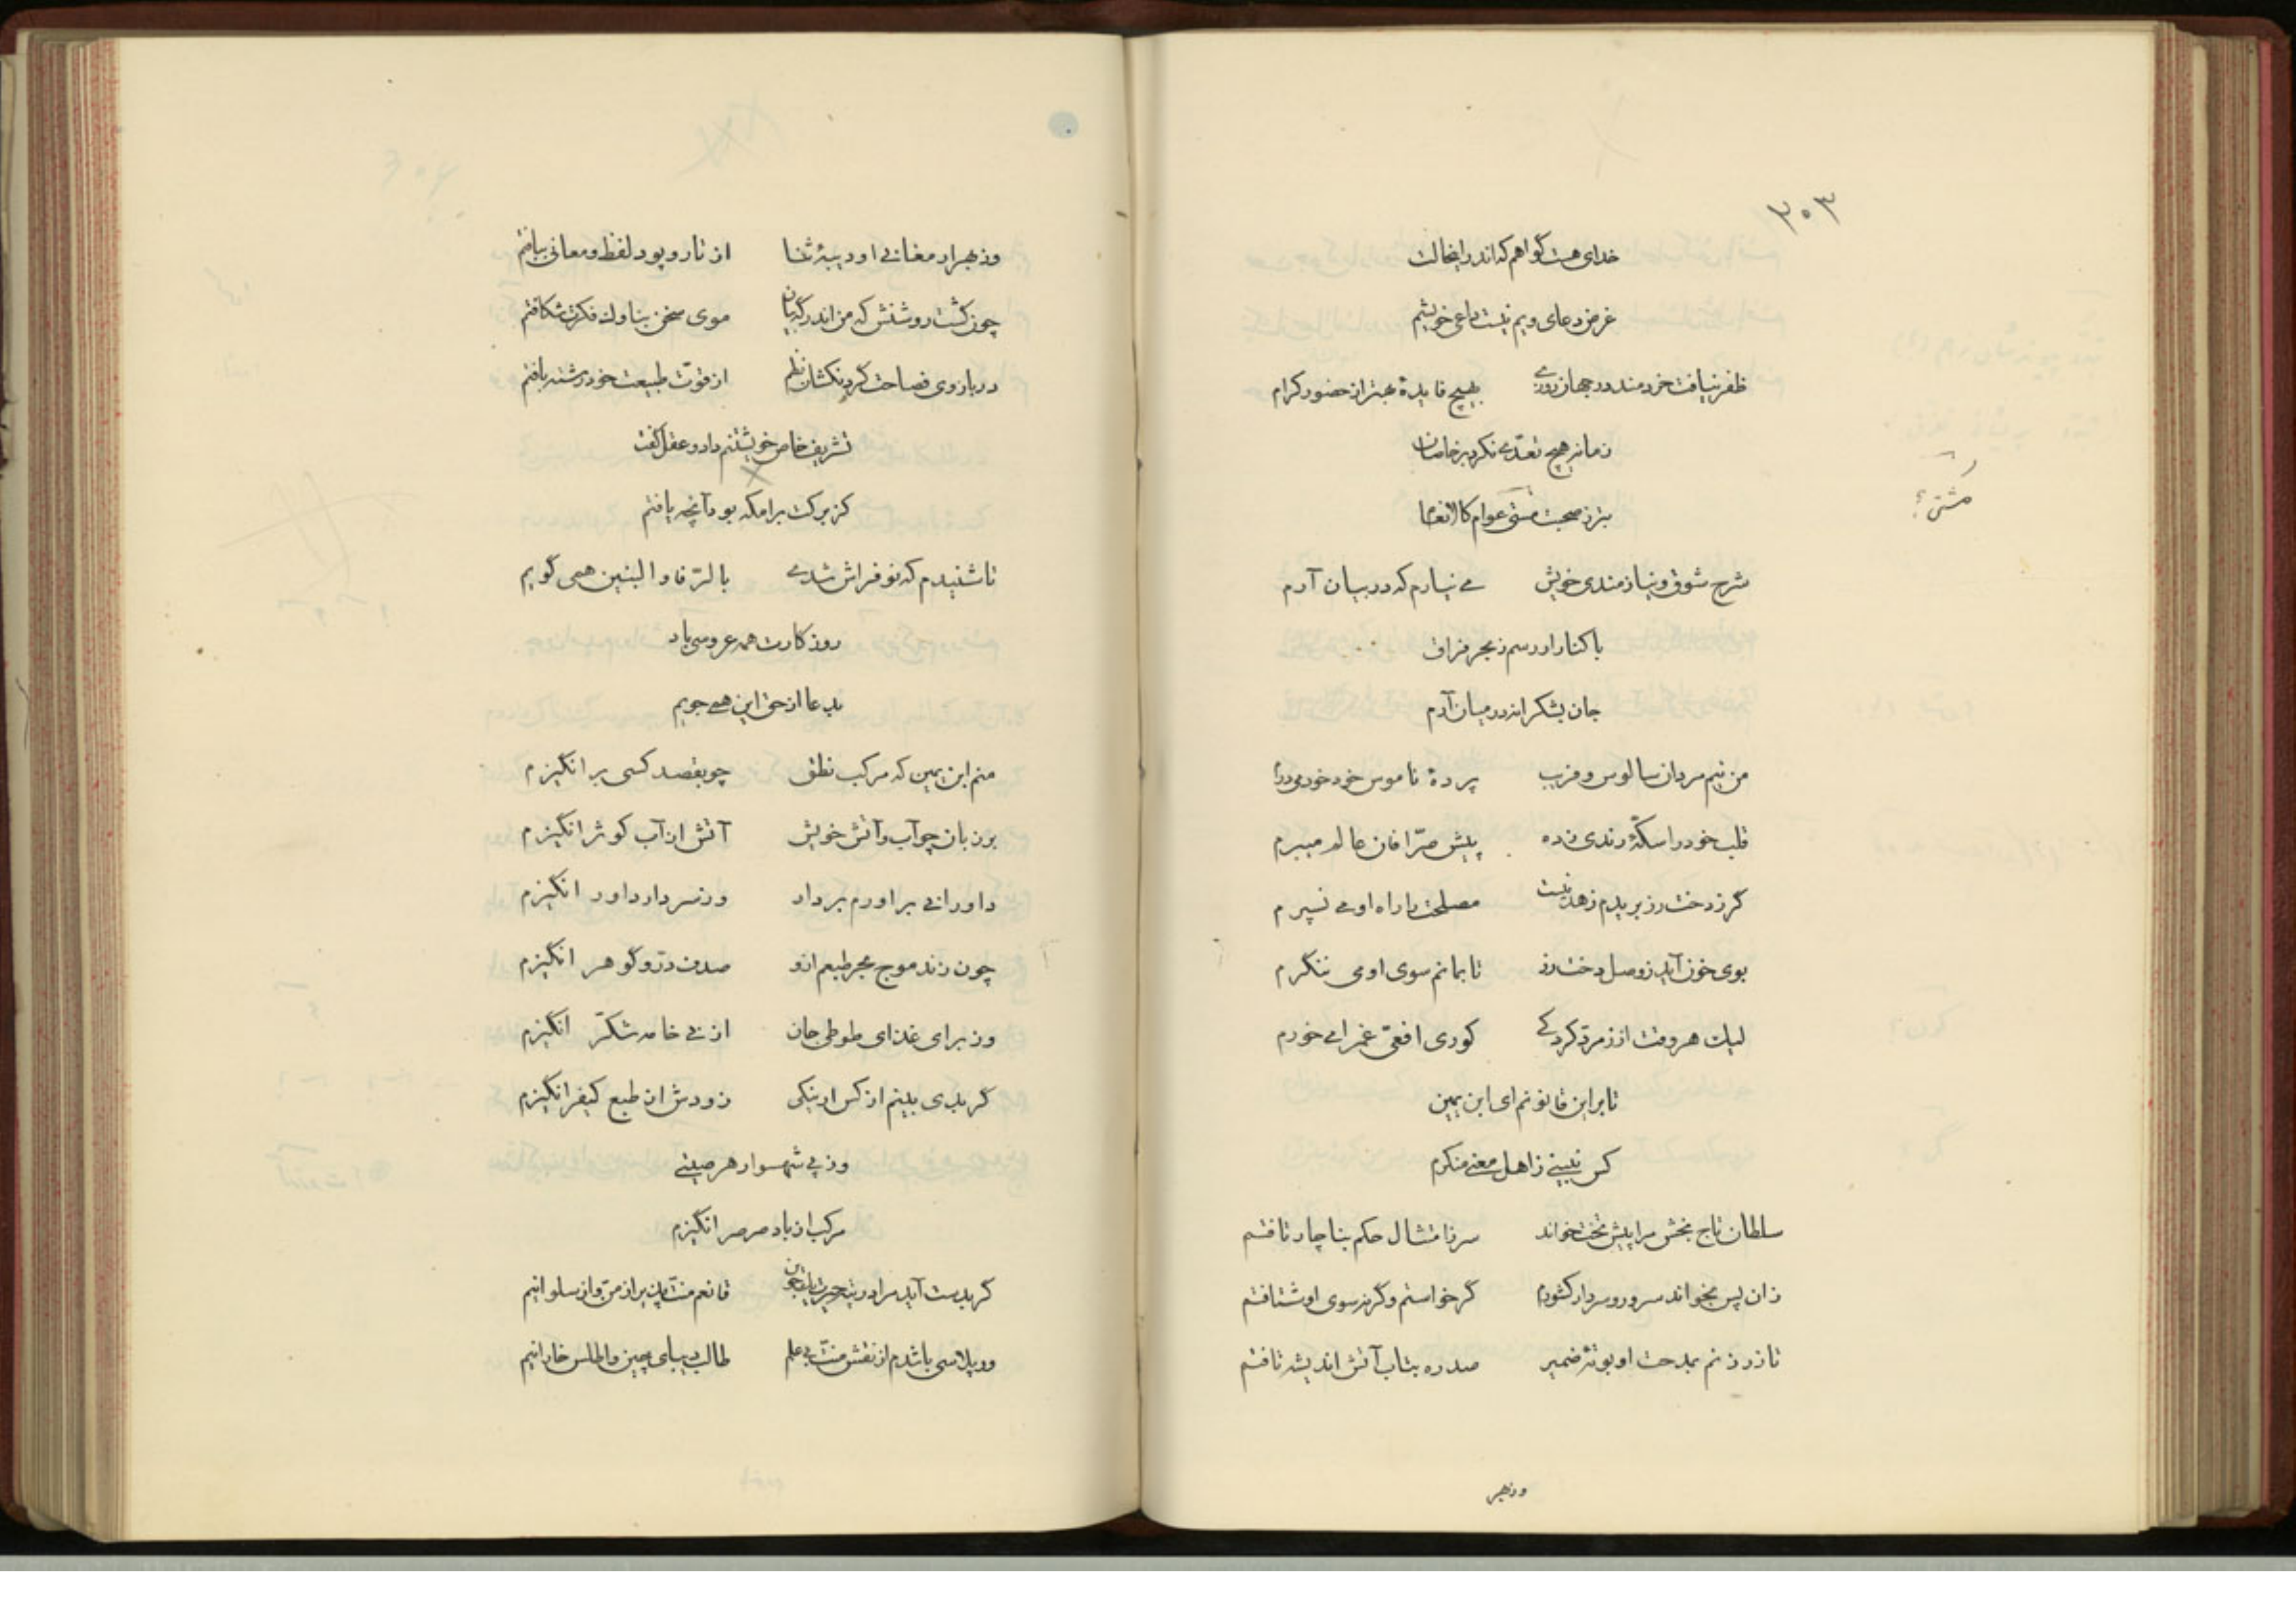 ۳۰۳
خدای هست گواهم که اندر اینحالت
غرض دعای ویم نیست داعی خویشم
ظفر نیافت خردمند در جهان روزی بهیچ فایدهٔ بهتر از حضور کرام
زمانه هیچ تعدی نکرد بر خاصان
بتر ز صحبت مشتی عوام کالانعام
مشتی؟
شرح شوق و نیازمندی خویش می نیارم که در بیان آرم
با کنار اورسم ز بحر فراق
جان بشکرانه در میان آرم
من نیم مردان سالوس و فریب پردهٔ ناموس خود خود می درم
قلب خود را سکهٔ رندی زده پیش صرّافان عالم میبرم
گر ز دخت رز بریدم زهد نیست مصلحت را راه او می نسپرم
بوی خون آید ز وصل دخت رز تا بمانم سوی او می ننگرم
لیک هر وقت از زمرّد کرد کی کوری افعیّ غم را می خورم
تا بر این قانونم ای ابن یمین
کس نبینی ز اهل معنی منکرم
سلطان تاج بخش مرا پیش تخت خواند سر ز امتثال حکم بناچار تافتم
زان پس بخواند سرور و سردار کشورم گر خواستم وگرنه سوی او شتافتم
تا زر زنم بمدحت او بوتهٔ ضمیر صد ره بتاب آتش اندیشه تافتم
وز بهر
وز بهر ارمغانی او دیبهٔ ثنا از تار و پود لفظ و معانی ببافتم
چون گشت روشنش که من اندر گه بیان موی سخن بناوک فکرت شکافتم
در بازوی فصاحت گردنکشان نظم از قوّت طبیعت خود رشته بافتم
تشریف خاص خویشتنم داد و عقل گفت
کز برک برامکه بود آنچه یافتم
تا شنیدم که نو فراش شدی بالرّفاء و البنین همی گویم
روز کارت همه عروسی باد
بدعا از حق این همی جویم
منم ابن یمین که مرکب نطق چو بقصد کسی بر انگیزم
بر زبان چو آب و آتش خویش آتش از آب کوثر انگیزم
داورانی بر اورم بر داد ور نسر دار داور انگیزم
چون زند موج بحر طبعم ازو صدف درّ و گوهر انگیزم
وز برای غذای طوطی جان از نی خامه شکّر انگیزم
گر بدی بینم از کس ار نیکی زودش از طبع کیفر انگیزم
وز پی شهسوار هر صیتی
مرکب از باد صرصر انگیزم
گر بدست آید مرا در تیه حیرت پاره نان قانعم منت پذیر از منّ و از سلوا نیم
ور پلاسی باشدم از نقش منّت بی علم طالب دیبای چین و اطلس خارا نیم